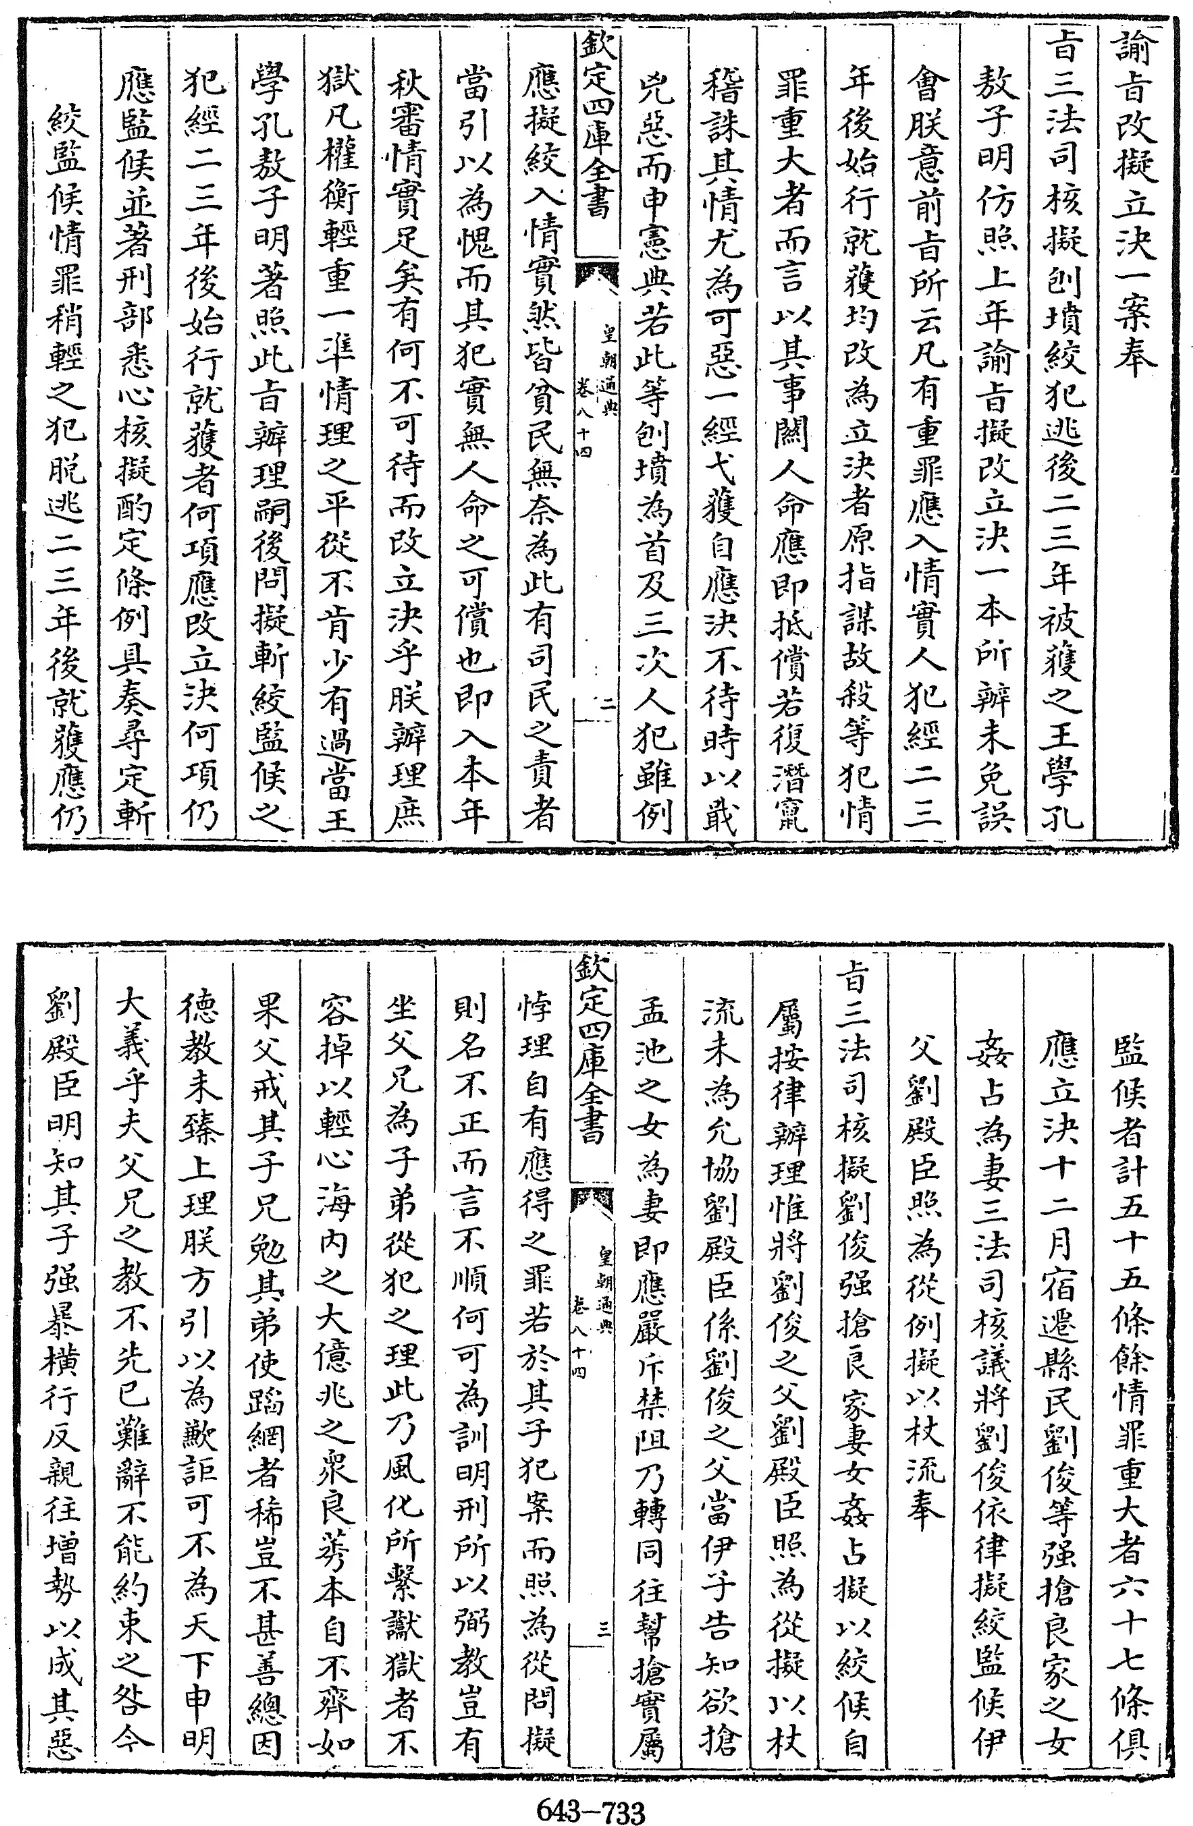 諭旨改擬立決一案奉
旨三法司核擬刨墳絞犯逃後二三年被獲之王學孔
敖子明仿照上年諭旨擬改立決一本所辦未免誤
會朕意前旨所云凡有重罪應入情實人犯經二三
年後始行就獲均改為立決者原指謀故殺等犯情
罪重大者而言以其事關人命應即抵償若復潛竄
稽誅其情尤為可惡一經弋獲自應決不待時以戢
兇惡而申憲典若此等刨墳為首及三次人犯雖例
欽定四庫全書
皇朝通典
卷八十四
二
應擬絞入情實然皆貧民無奈為此有司民之責者
當引以為愧而其犯實無人命之可償也即入本年
秋審情實足矣有何不可待而改立決乎朕辦理庶
獄凡權衡輕重一準情理之平從不肯少有過當王
學孔敖子明著照此旨辦理嗣後問擬斬絞監候之
犯經二三年後始行就獲者何項應改立決何項仍
應監候並著刑部悉心核擬酌定條例具奏尋定斬
絞監候情罪稍輕之犯脫逃二三年後就獲應仍
監候者計五十五條餘情罪重大者六十七條俱
應立決十二月宿遷縣民劉俊等强搶良家之女
姦占為妻三法司核議將劉俊依律擬絞監候伊
父劉殿臣照為從例擬以杖流奉
旨三法司核擬劉俊强搶良家妻女姦占擬以絞候自
屬按律辦理惟將劉俊之父劉殿臣照為從擬以杖
流未為允協劉殿臣係劉俊之父當伊子告知欲搶
孟池之女為妻即應嚴斥禁阻乃轉同往幫搶實屬
欽定四庫全書
皇朝通典
卷八十四
三
悖理自有應得之罪若於其子犯案而照為從問擬
則名不正而言不順何可為訓明刑所以弼教豈有
坐父兄為子弟從犯之理此乃風化所繫讞獄者不
容掉以輕心海内之大億兆之衆良莠本自不齊如
果父戒其子兄勉其弟使蹈網者稀豈不甚善總因
德教未臻上理朕方引以為歉詎可不為天下申明
大義乎夫父兄之教不先已難辭不能約束之咎今
劉殿臣明知其子强暴橫行反親往增勢以成其惡
643-733